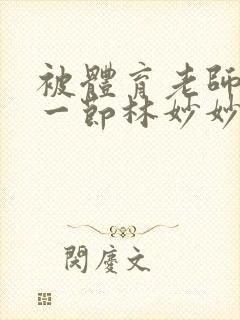 被體育老師
一節林妙妙
閔慶文